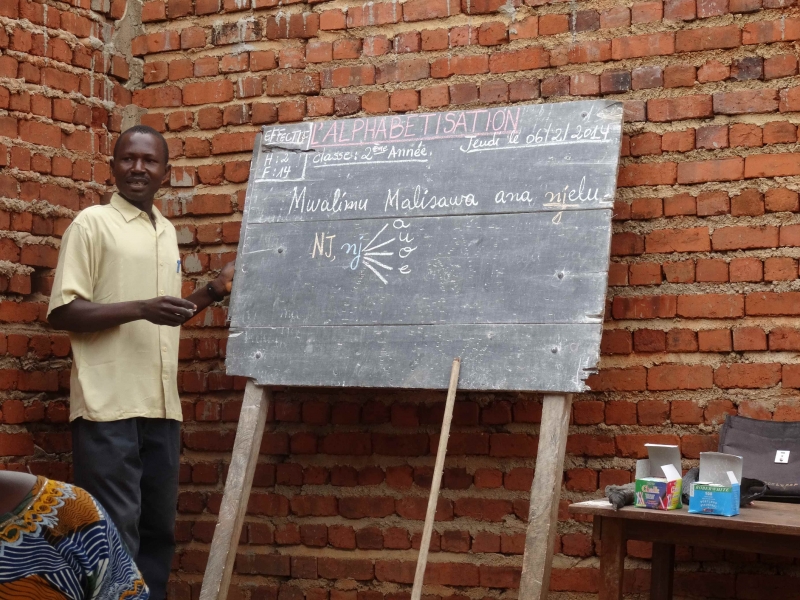 EFFECTIF L'ALPHABETISATION
H: 2 Classe: 2ème Année. Jeudi le 06/2/2014
F: 14 T
Mwalimu Malisawa ana njelu
NJ, nj a
u
o
e